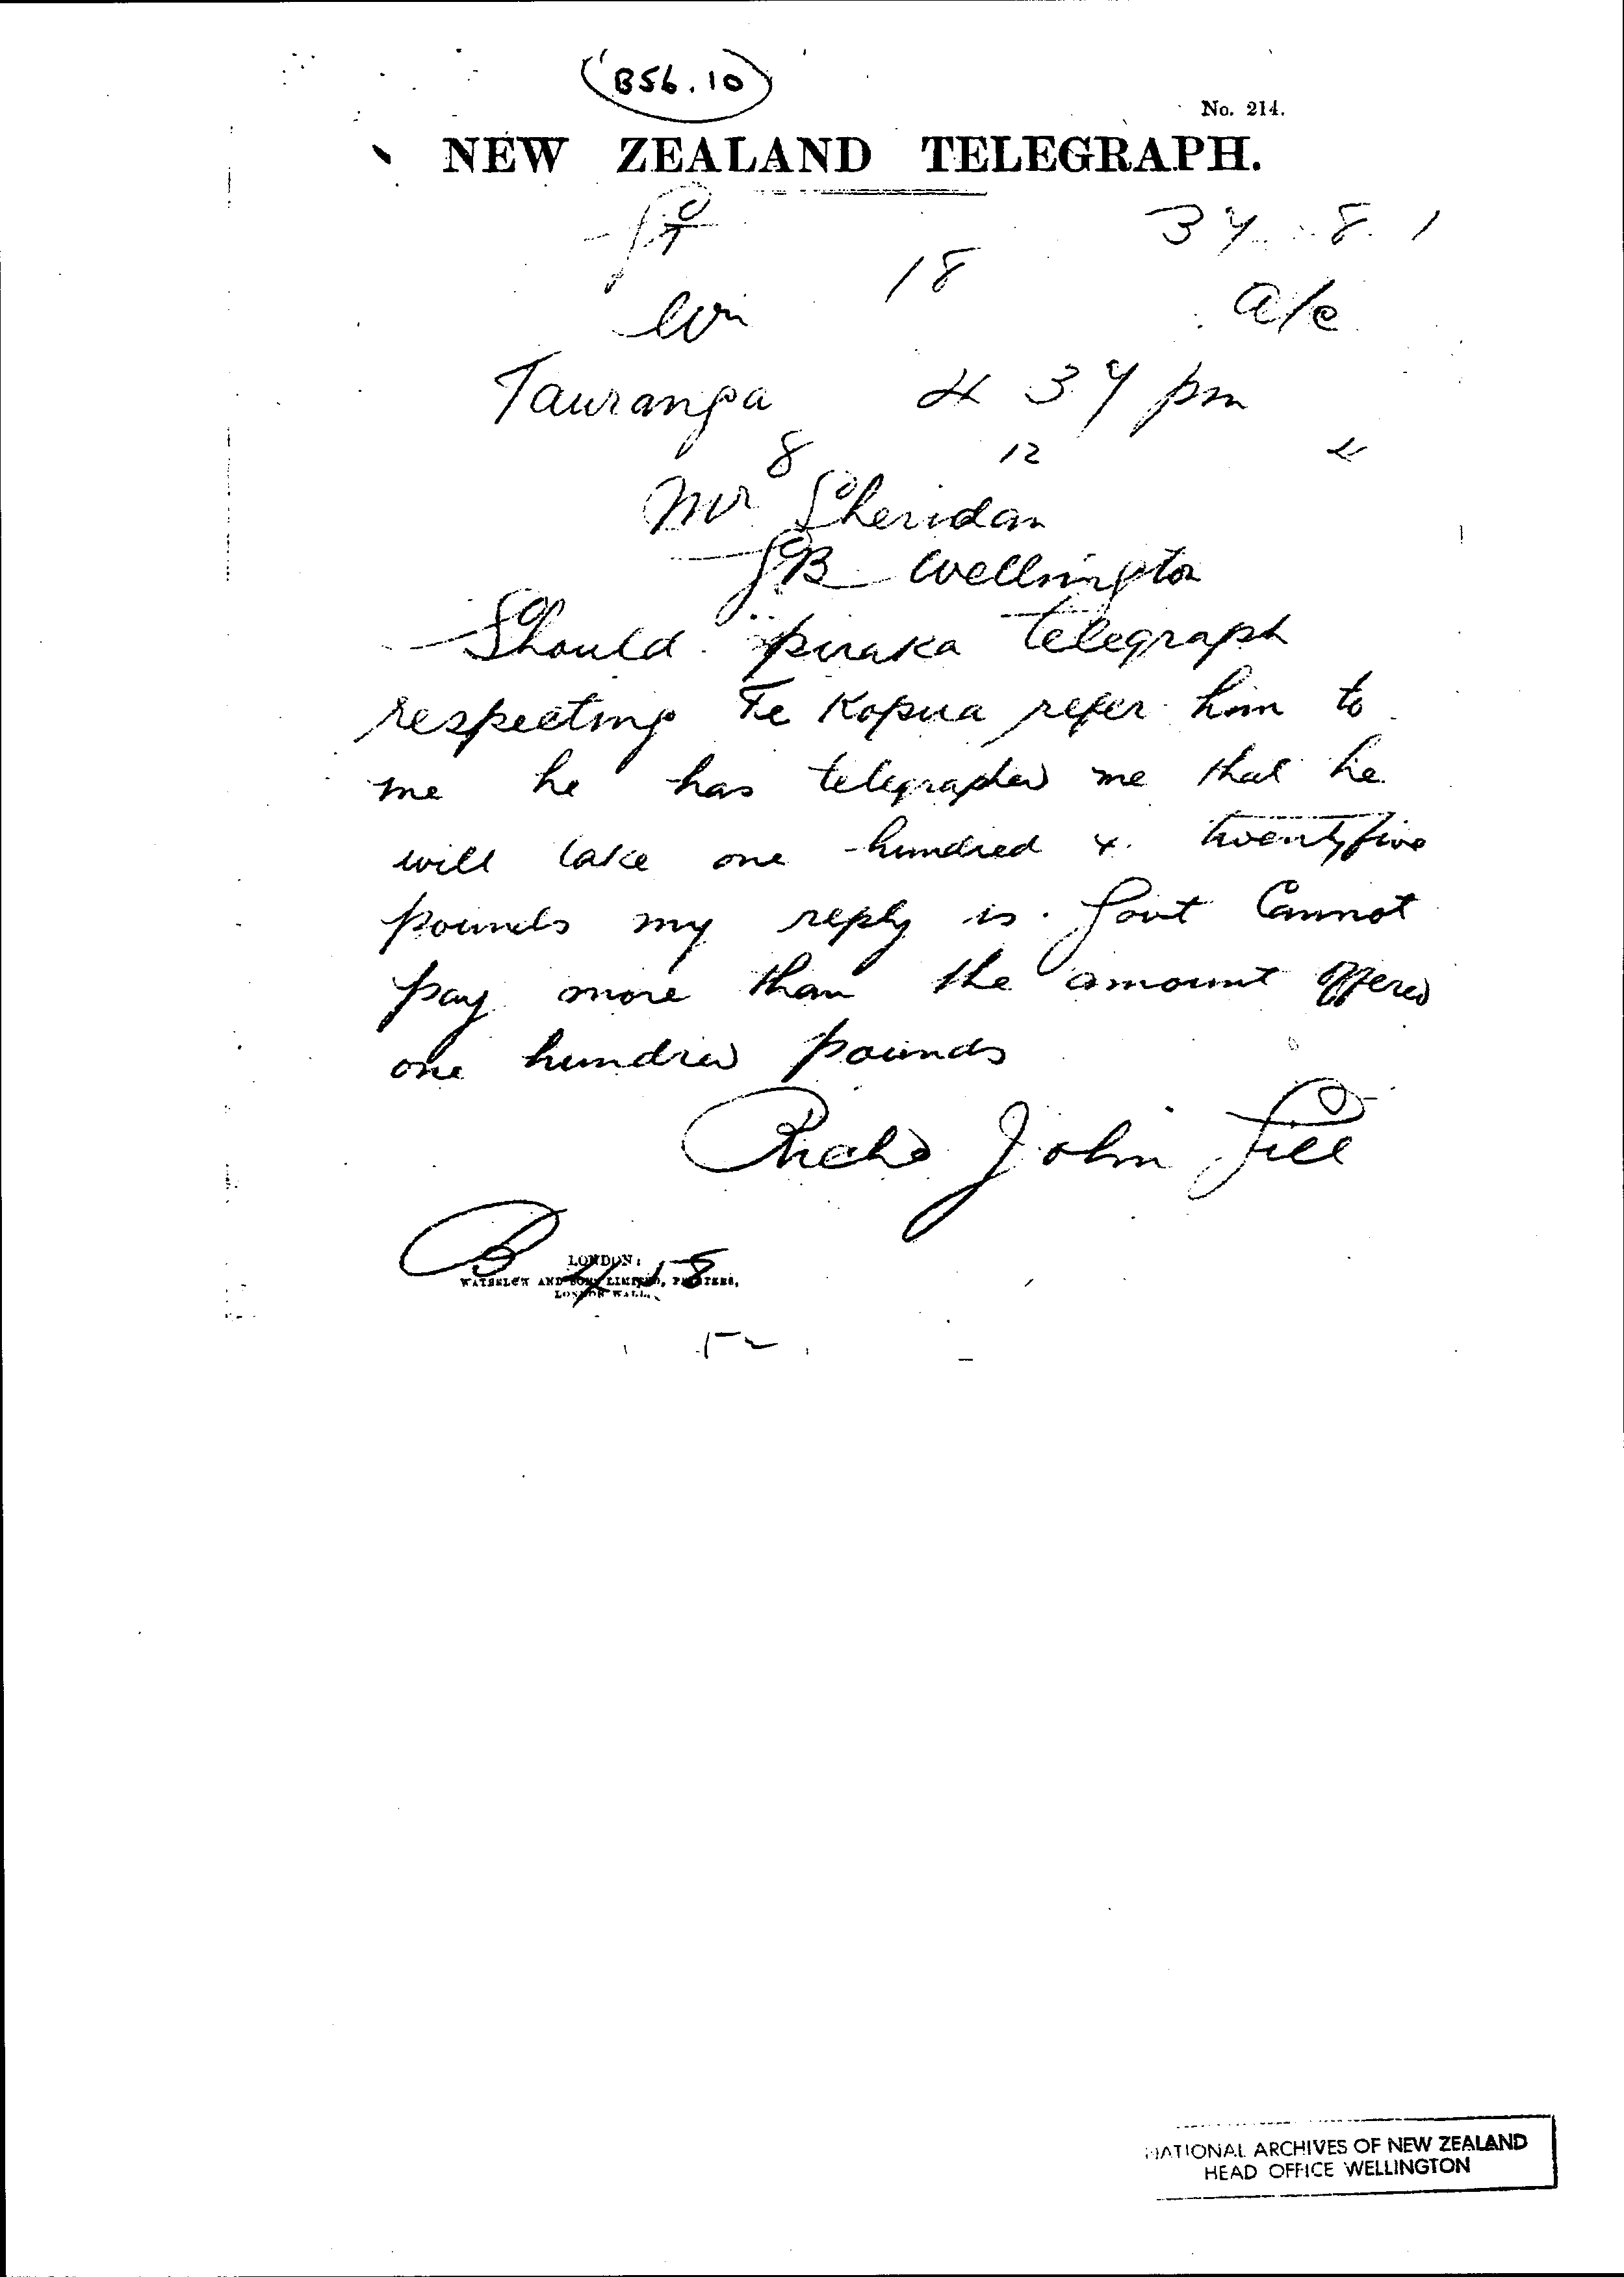 B56.10
No. 214.
NEW ZEALAND TELEGRAPH.
37 8 1
18
Wn a/c
Tauranga 4 37 pm
8 12 4
Mr Sheridan
GB Wellington
Should piraka telegraph
respecting Te Kopua refer him to
me he has telegraphed me that he
will take one hundred & twentyfive
pounds my reply is Govt Cannot
pay more than the amount offered
one hundred pounds
Richd John Gill
B 4 58
LONDON:
WATERLOW AND SONS LIMITED, PRINTERS,
LONDON WALL.
NATIONAL ARCHIVES OF NEW ZEALAND
HEAD OFFICE WELLINGTON